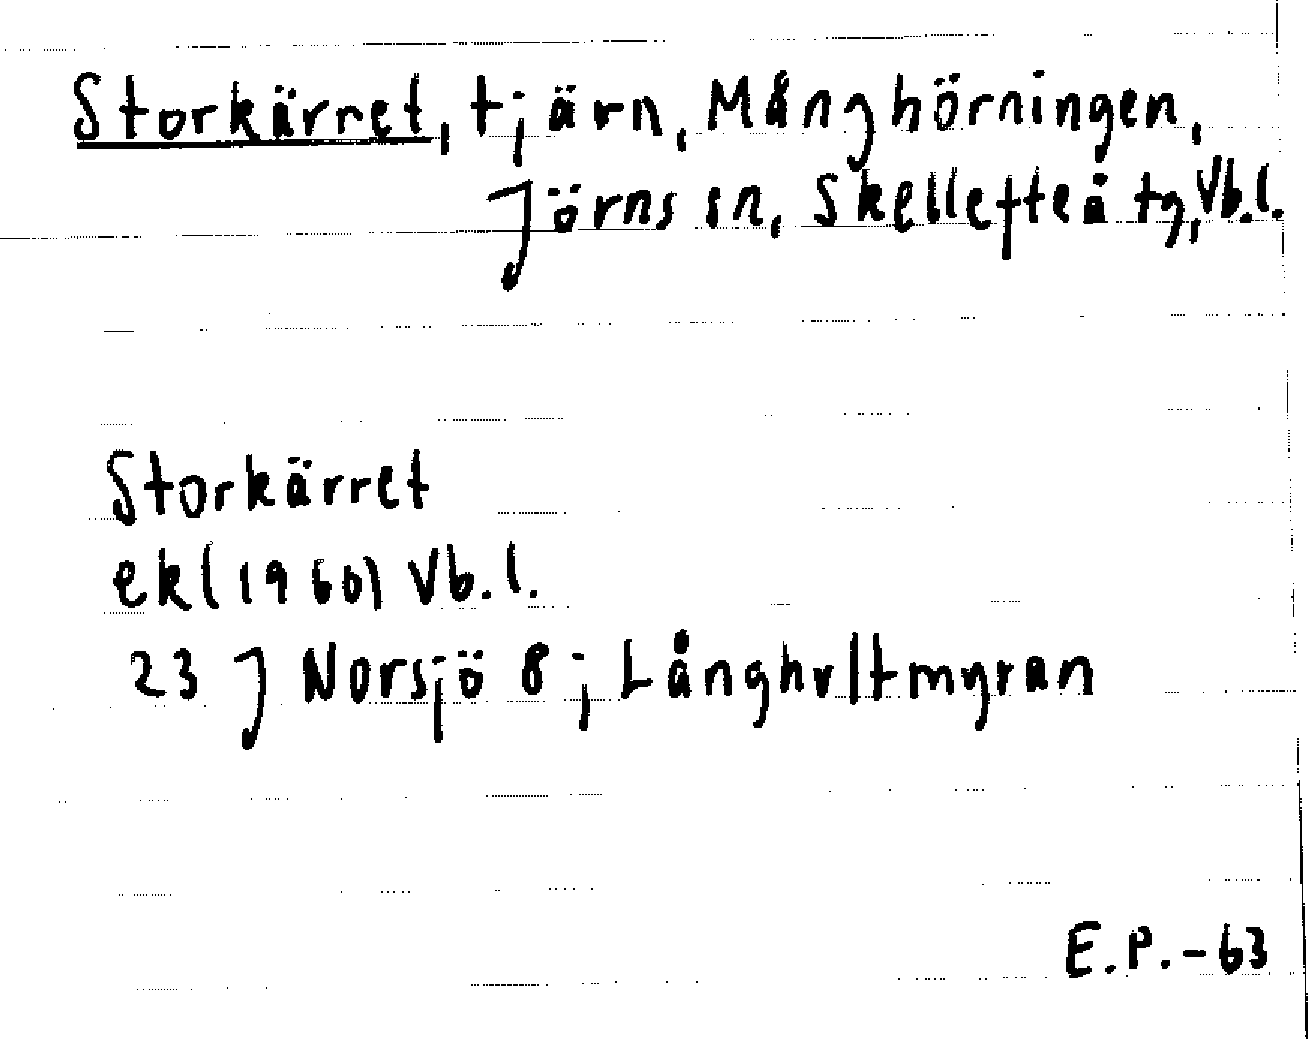 Storkärret, tjärn, Månghörningen,
Jörns sn, Skellefteå tg, Vb.l.
Storkärret
ek (1960) Vb.l.
23 J Norsjö 8 j Långhvltmyran
E.P.-63